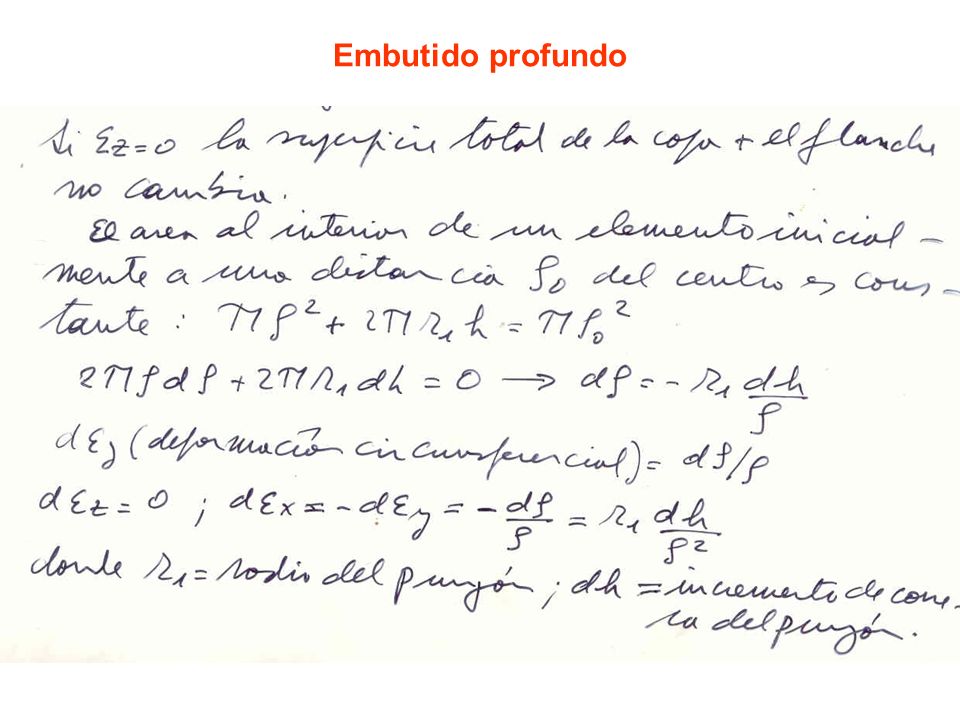 Embutido profundo
Si εz=0 la superficie total de la copa + el flanche
no cambia.
El area al interior de un elemento inicial-
mente a una distancia ρ₀ del centro es cons-
tante : πρ² + 2πr₁h = πρ₀²
2πρdρ + 2πr₁dh = 0 → dρ = - r₁ dh/ρ
dεy (deformación circunsferencial) = dρ/ρ
dεz = 0 ; dεx = -dεy = - dρ/ρ = r₁ dh/ρ²
donde r₁ = radio del punzón ; dh = incremento de carre-
ra del punzón.